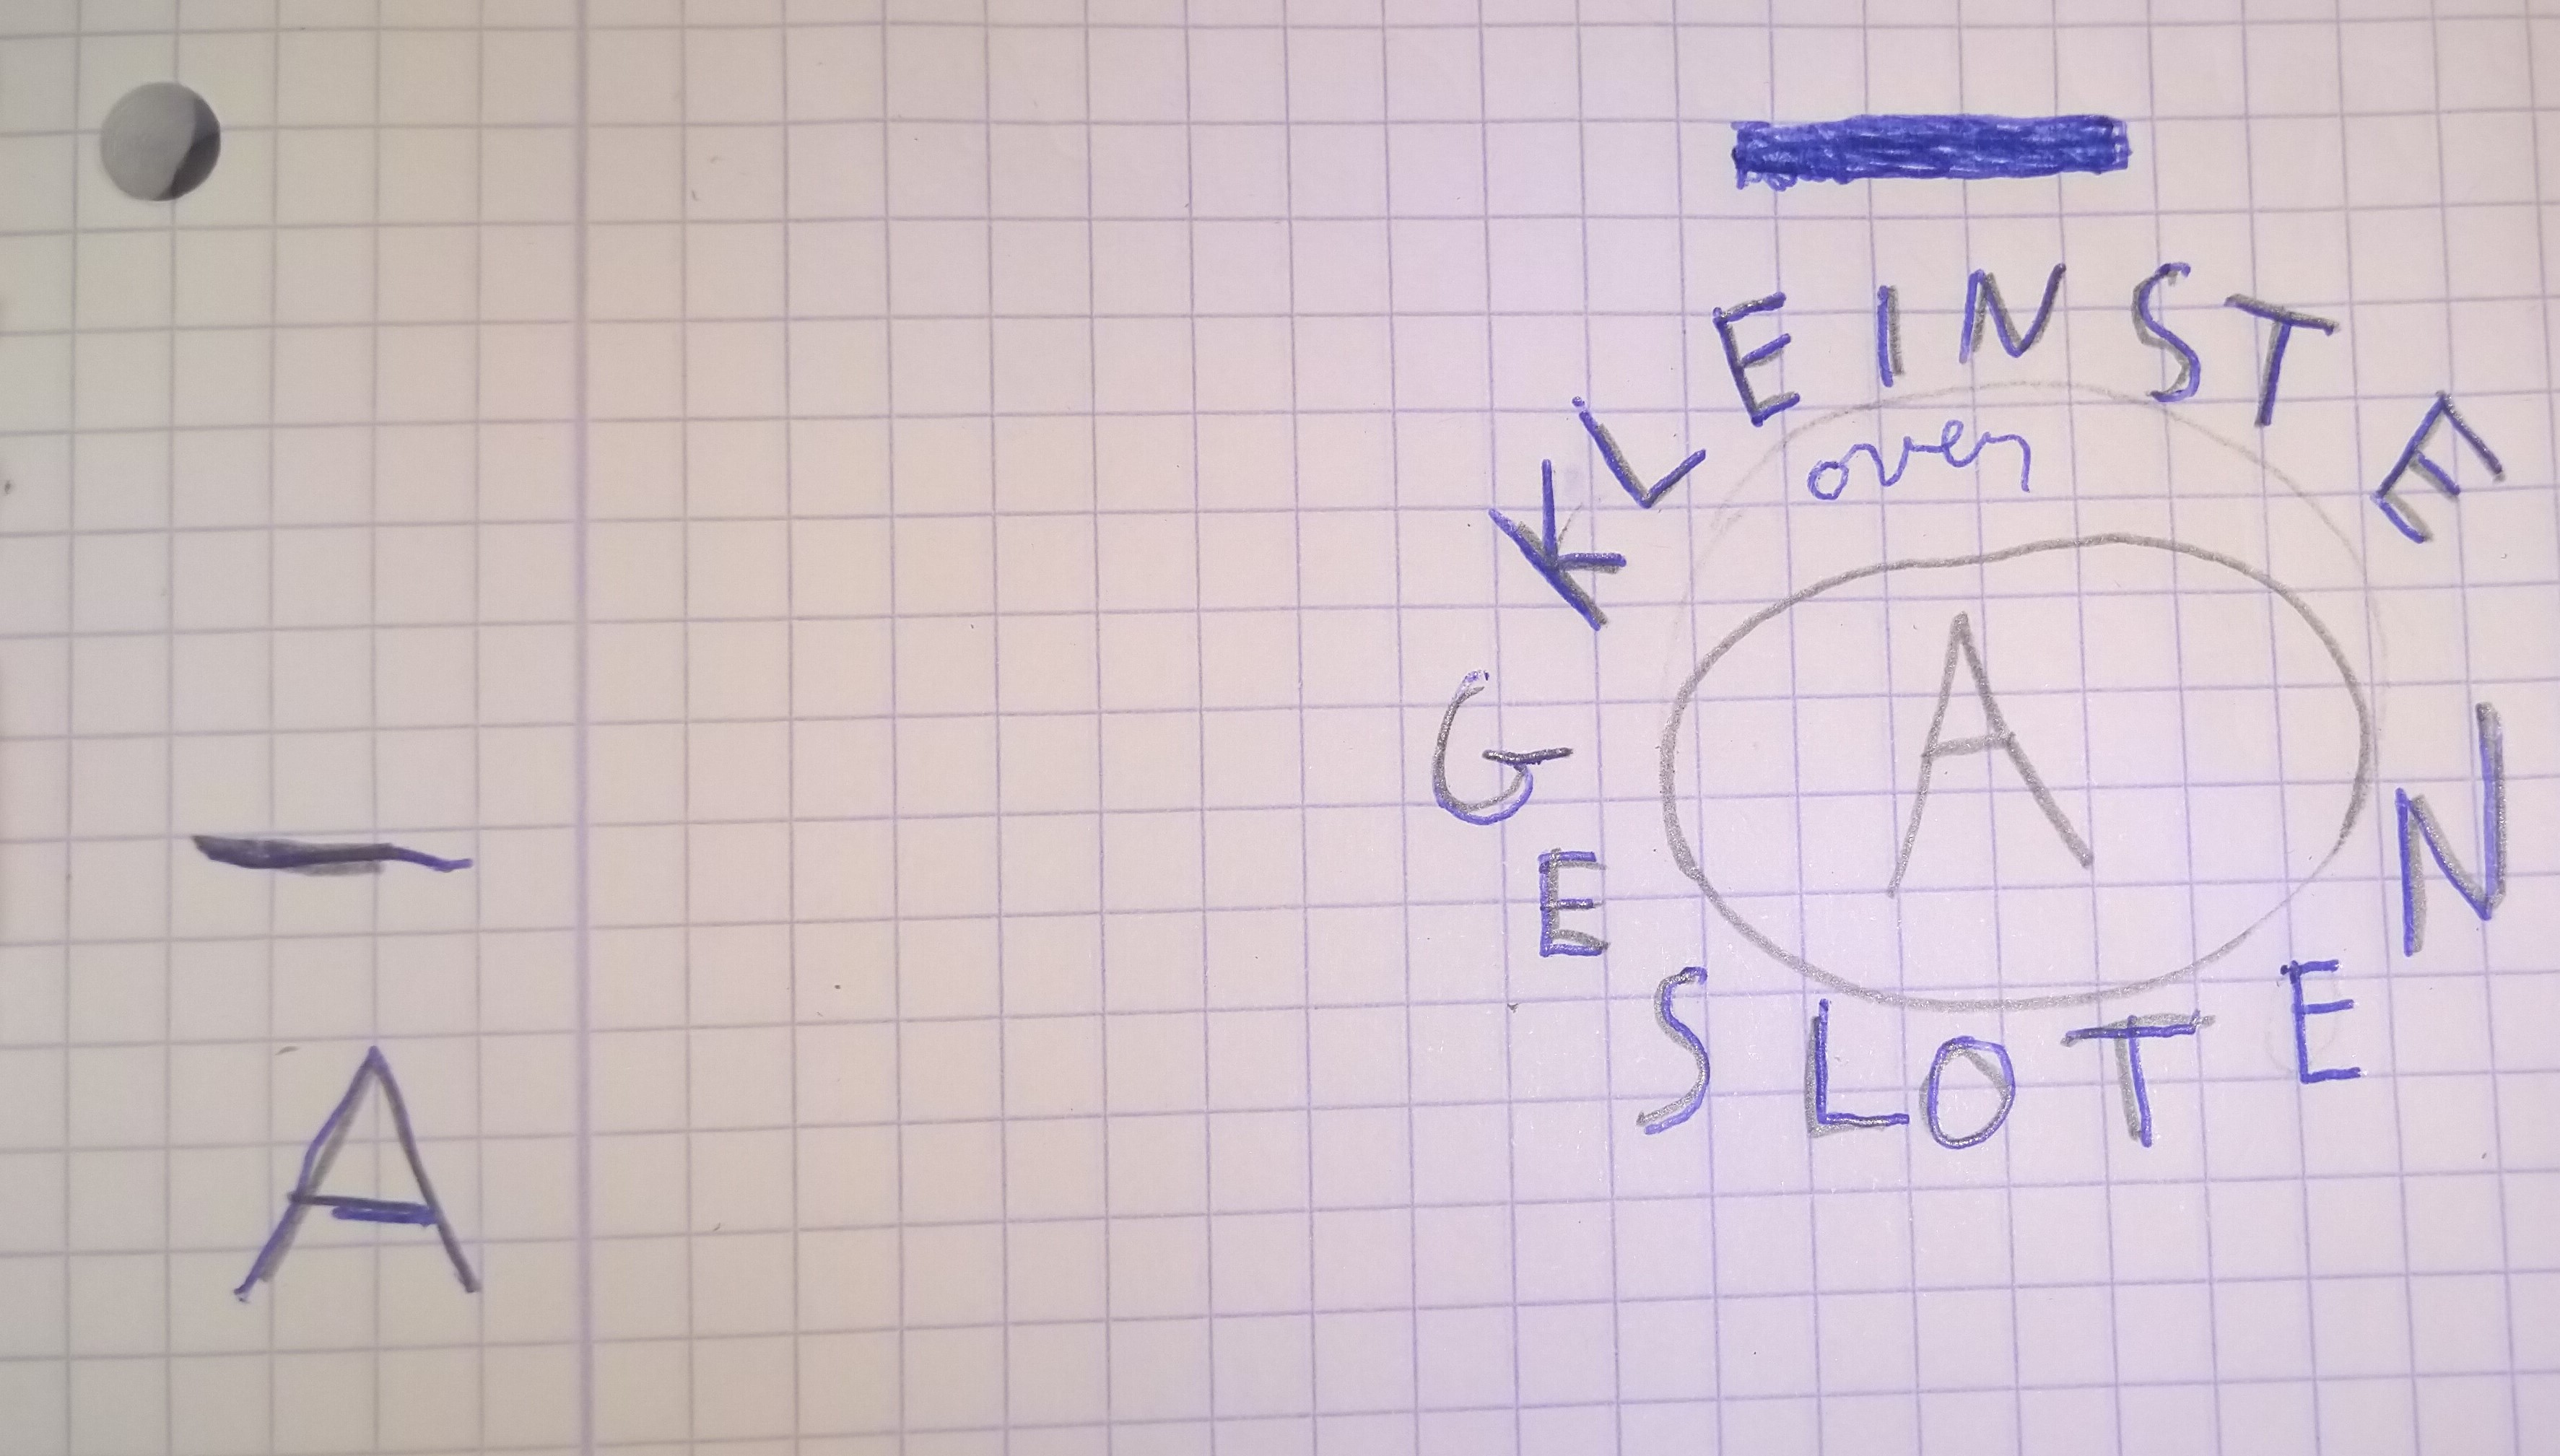 KLEINSTE
over
A
GESLOTEN
A